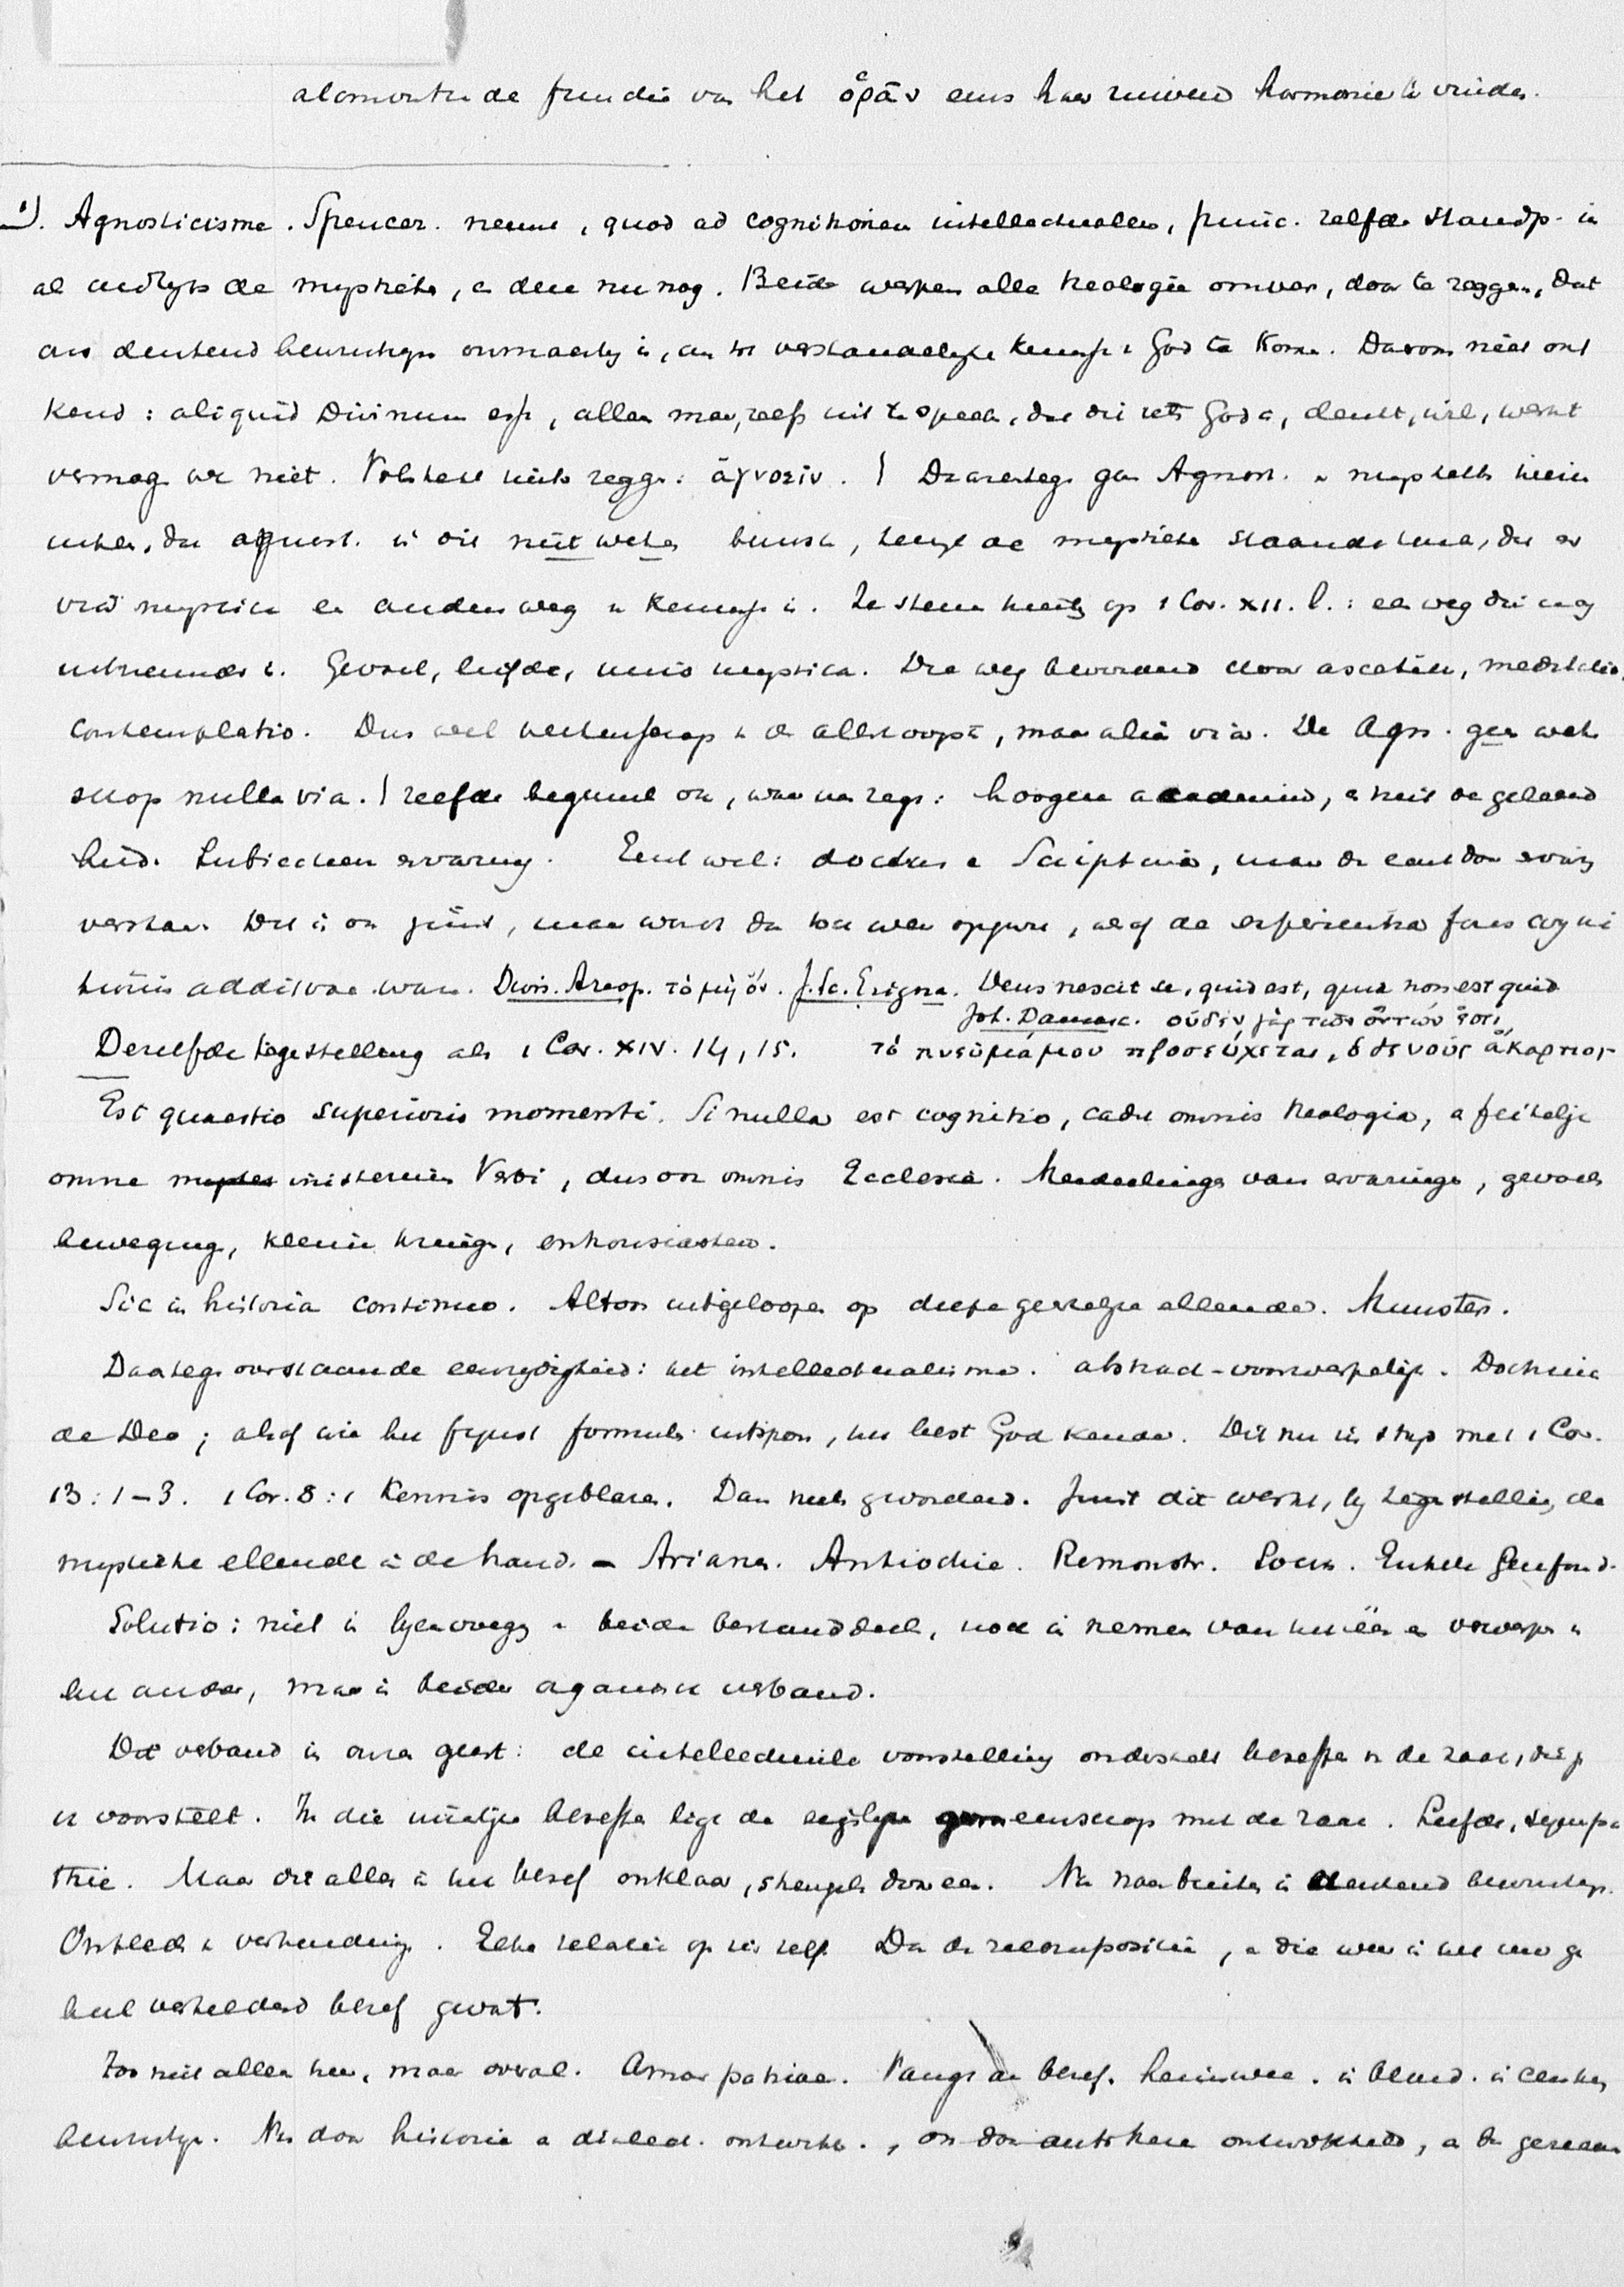 de van het ὁρᾶν eens haar harmonie te vinden.
1). Agnosticisme. Spencer. neemt, quod ad cognitionem intellectualem, princ. zelfde standp. in
al de mystieke, en deze nu nog. Beide werpen alle theologie omver, door te zeggen, dat
ons denkend bewustzijn onmachtig is, om tot verstandelijke kennis v God te komen. Daarom niet ont
kend: aliquid Divinum esse, alleen maar, zelfs uit te spreken, dat dit iets God is, denkt, wil, werkt
vermag ik niet. Volstrekt niets zeggen: ἀγνοεῖν. Daarentegen gaan Agnost. en mystiek hierin
uiteen, dat agnost. in dit niet weten berust, terwijl de mystieke staande houdt, dat er
via mystica een andere weg v kennis is. Ze steunt hierbij op 1 Cor. XII. : een weg die nog
uitnemender is. Gevoel, liefde, unio mystica. Die weg bevorderd door ascetiek, meditatio,
Contemplatio. Dus wel wetenschap v de allerhoogste, maar alia via. De Agn. geen weten
schap nulla via. zelfde beginsel ook, waar men zegt: hoogere academie, en niet de geleerd
heid. Subjectieve ervaring. Eerst wel: doctus e Scriptura, maar dan eerst door ervaring
verstaan. Dit is ook juist, maar wordt dan toch weer opgevat, alsof de experientia fons cogni
tionis additivae ware. Dion. Areop. τὸ μὴ ὄν. J. Sc. Erigna. Deus nescit se, quid est, quia non est quid
Joh. Damasc. οὐδὲν γὰρ τῶν ὄντων ἐστι
Dezelfde tegenstelling als 1 Cor. XIV. 14, 15. τὸ πνεῦμά μου προσεύχεται, ὁ δὲ νοῦς ἄκαρπος
Est quaestio superioris momenti. Si nulla est cognitio, cadit omnis theologia, en feitelijk
omne ministerium Verbi, dus ook omnis Ecclesia. Mededeelingen van ervaringen, gevoels
beweging, kleine kringen, enthousiasten.
Sic in historia continuo. Altoos uitgeloopen op diepe geestelijke ellende. Munster.
Daartegenoverstaande eenzijdigheid: het intellectualisme. abstract-voorwerpelijk. Doctrina
de Deo; alsof wie het fijnst formules uitspon, het best God kende. Dit nu in strijd met 1 Cor.
13:1-3. 1 Cor. 8:1 Kennis opgeblazen. Dan niets geworden. Juist dit werkt, bij tegenstelling, de
mystieke ellende in de hand. - Arianen. Antiochie. Remonstr. Socin. Enkele Geref.
Solutio: niet in bijeenvoeging v beide bestanddeelen, noch in nemen van het eene en verwerpen v
het andere, maar in beider organisch verband.
Dit verband is onze geest: de intellectueele voorstelling onderstelt beseffen v de zaak, die je
u voorstelt. In die innerlijke beseffen ligt de eigenlijke gemeenschap met de zaak. Liefde, sympa
thie. Maar dit alles is in het besef onklaar, strengelt dooreen. Nu naar buiten in denkend bewustzijn.
Ontleed v verhouding. Elke relatie op zich zelf. Dan de recompositie, en die weer in het nu ge
heel verhelderd besef gevat.
Zoo niet alleen hier, maar overal. Amor patriae. Vangt aan besef. heimwee. in bloed. in denken
bewustzijn. Nu door historie en ontwikk., ook door ontwikkeld, en dan